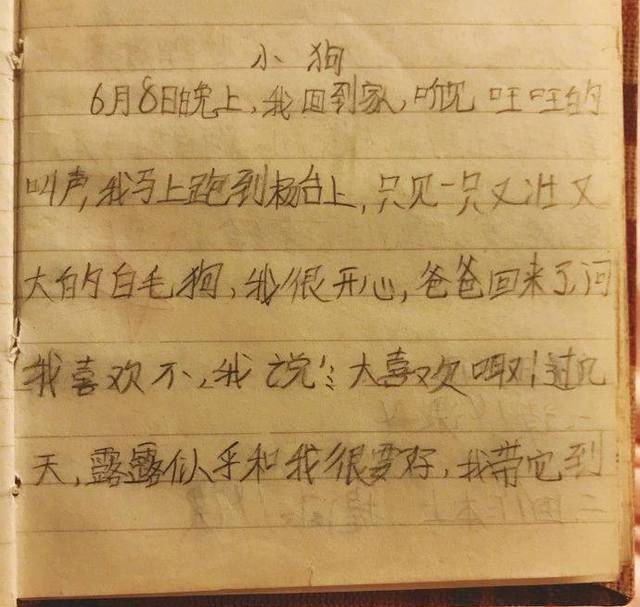 小狗
6月8日晚上,我回到家,听见旺旺的
叫声,我马上跑到杨台上,只见一只又壮又
大的白毛狗,我很开心,爸爸回来了问
我喜欢不,我说:“大喜欢啊!过几
天,露露似乎和我很要好,我带它到